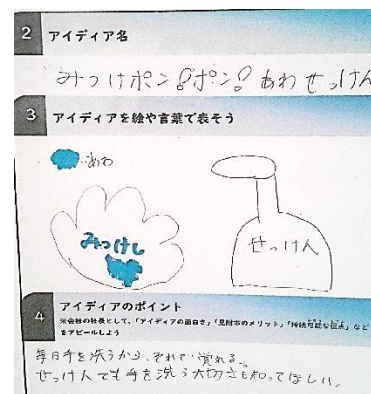 2 アイディア名
みつけポン!ポン!あわせっけん
3 アイディアを絵や言葉で表そう
あわ
みつけし
せっけん
4 アイディアのポイント
※会社の社長として、「アイディアの面白さ」「見附市のメリット」「持続可能な視点」など
をアピールしよう
毎日手を洗うから、それで覚れる。
せっけんでも手を洗う大切さも知ってほしい。